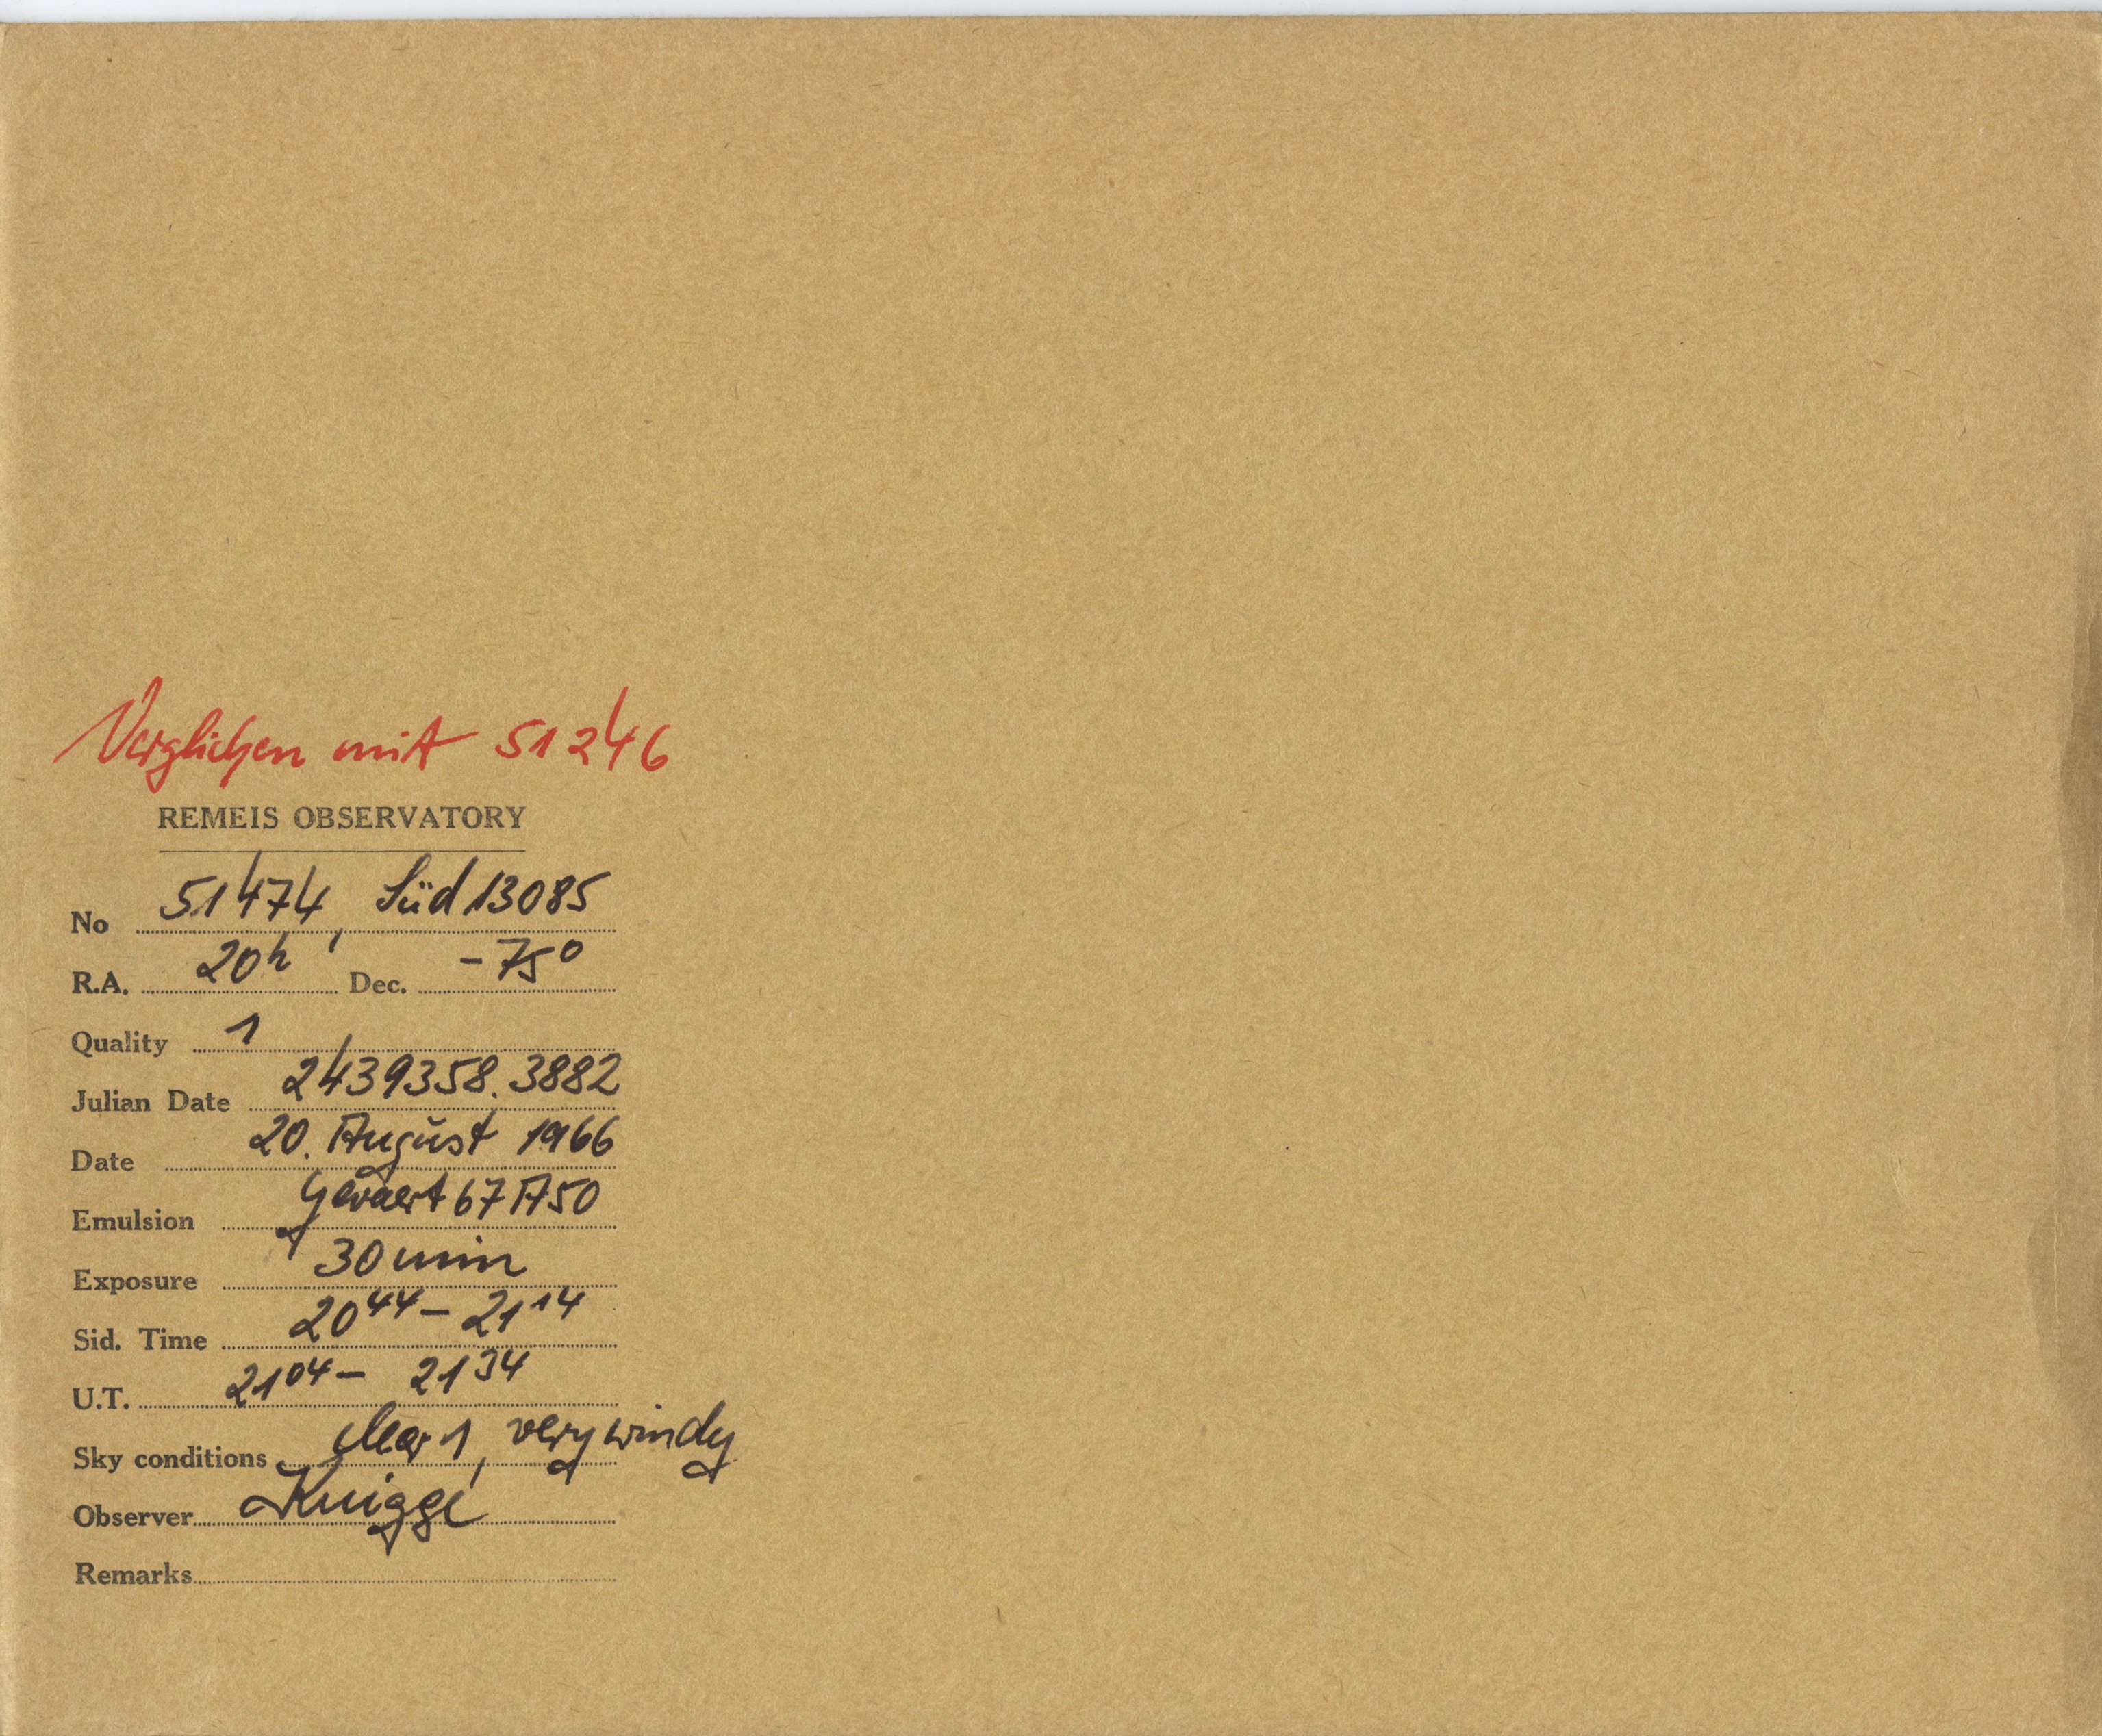 Verglichen mit 51246
REMEIS OBSERVATORY
No 51474, Süd 13085
R.A. 20h Dec. -75°
Quality 1
Julian Date 2439358.3882
Date 20. August 1966
Emulsion Gevaert 67A50
Exposure 30 min
Sid. Time 20 44 - 21 14
U.T. 21 04 - 21 34
Sky conditions clear 1, very windy
Observer Knigge
Remarks